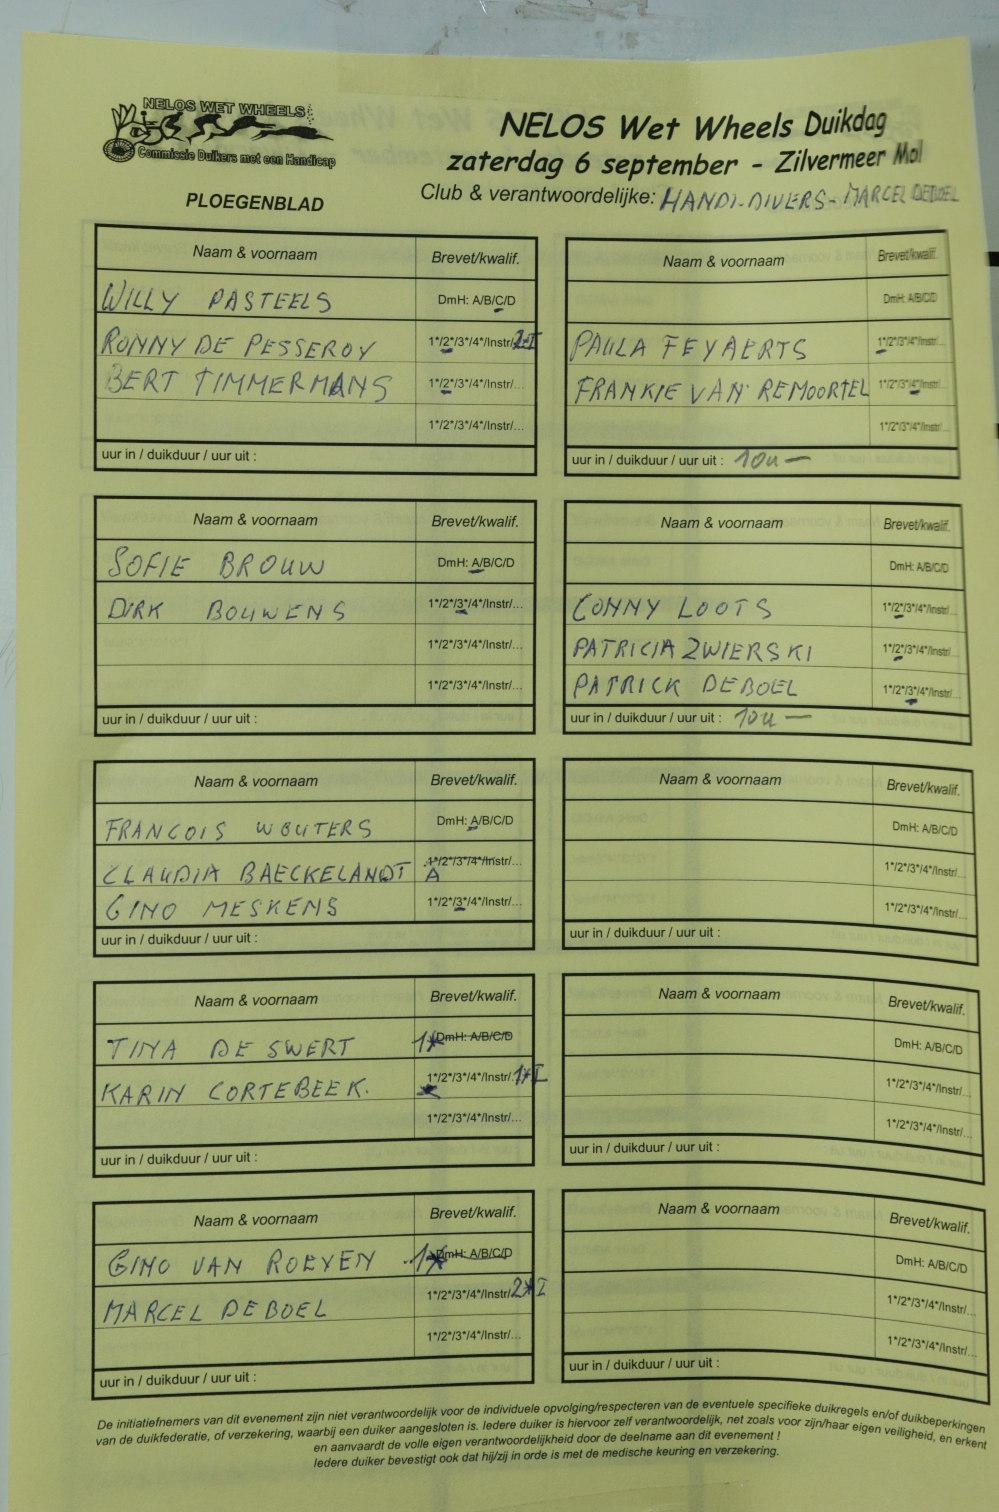 NELOS WET WHEELS
Commissie Duikers met een Handicap
NELOS Wet Wheels Duikdag
zaterdag 6 september - Zilvermeer Mol
PLOEGENBLAD
Club & verantwoordelijke: HANDI-DIVERS - MARCEL DEBOEL
Naam & voornaam Brevet/kwalif.
WILLY PASTEELS DmH: A/B/C/D
RONNY DE PESSEROY 1*/2*/3*/4*/Instr/ 2*I
BERT TIMMERMANS 1*/2*/3*/4*/Instr/...
1*/2*/3*/4*/Instr/...
uur in / duikduur / uur uit :
Naam & voornaam Brevet/kwalif.
DmH: A/B/C/D
PAULA FEYAERTS 1*/2*/3*/4*/Instr/...
FRANKIE VAN REMOORTEL 1*/2*/3*/4*/Instr/...
1*/2*/3*/4*/Instr/...
uur in / duikduur / uur uit : 10u —
Naam & voornaam Brevet/kwalif.
SOFIE BROUW DmH: A/B/C/D
DIRK BOUWENS 1*/2*/3*/4*/Instr/...
1*/2*/3*/4*/Instr/...
1*/2*/3*/4*/Instr/...
uur in / duikduur / uur uit :
Naam & voornaam Brevet/kwalif.
DmH: A/B/C/D
CONNY LOOTS 1*/2*/3*/4*/Instr/...
PATRICIA ZWIERSKI 1*/2*/3*/4*/Instr/...
PATRICK DEBOEL 1*/2*/3*/4*/Instr/...
uur in / duikduur / uur uit : 10u —
Naam & voornaam Brevet/kwalif.
FRANCOIS WOUTERS DmH: A/B/C/D
CLAUDIA BAECKELANDT 1*/2*/3*/4*/Instr/... A
GINO MESKENS 1*/2*/3*/4*/Instr/...
uur in / duikduur / uur uit :
Naam & voornaam Brevet/kwalif.
DmH: A/B/C/D
1*/2*/3*/4*/Instr/...
1*/2*/3*/4*/Instr/...
uur in / duikduur / uur uit :
Naam & voornaam Brevet/kwalif.
TINA DE SWERT 1* DmH: A/B/C/D
KARIN CORTEBEEK. 1*/2*/3*/4*/Instr/ 1*I
1*/2*/3*/4*/Instr/...
uur in / duikduur / uur uit :
Naam & voornaam Brevet/kwalif.
DmH: A/B/C/D
1*/2*/3*/4*/Instr/...
1*/2*/3*/4*/Instr/...
uur in / duikduur / uur uit :
Naam & voornaam Brevet/kwalif.
GINO VAN ROEYEN 1* DmH: A/B/C/D
MARCEL DEBOEL 1*/2*/3*/4*/Instr/ 2*I
1*/2*/3*/4*/Instr/...
uur in / duikduur / uur uit :
Naam & voornaam Brevet/kwalif.
DmH: A/B/C/D
1*/2*/3*/4*/Instr/...
1*/2*/3*/4*/Instr/...
uur in / duikduur / uur uit :
De initiatiefnemers van dit evenement zijn niet verantwoordelijk voor de individuele opvolging/respecteren van de eventuele specifieke duikregels en/of duikbeperkingen
van de duikfederatie, of verzekering, waarbij een duiker aangesloten is. Iedere duiker is hiervoor zelf verantwoordelijk, net zoals voor zijn/haar eigen veiligheid, en erkent
en aanvaardt de volle eigen verantwoordelijkheid door de deelname aan dit evenement !
Iedere duiker bevestigt ook dat hij/zij in orde is met de medische keuring en verzekering.